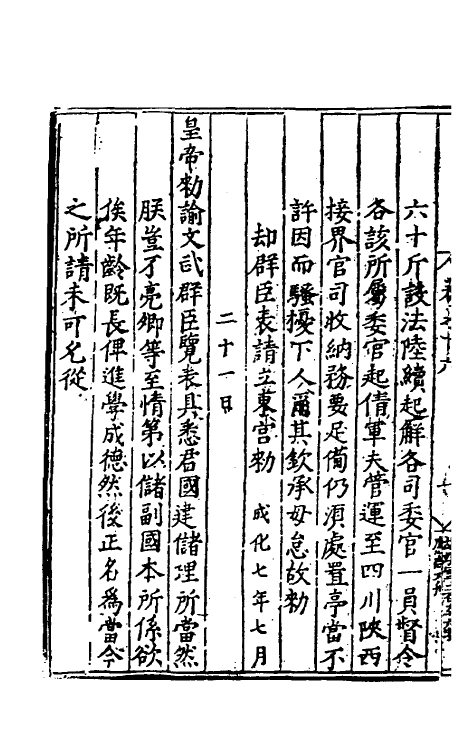 六十斤設法陸續起解各司委官一員督令
各該所屬委官起倩軍夫管運至四川陝西
接界官司收納務要足備仍須處置亭當不
許因而騷擾下人爾其欽承毋怠故勑
却群臣表請立東宮勑 成化七年七月
二十一日
皇帝勑諭文武群臣覽表具悉君國建儲理所當然
朕豈不亮卿等至情第以儲副國本所係欲
俟年齡既長俾進學成德然後正名爲當今
之所請未可允從